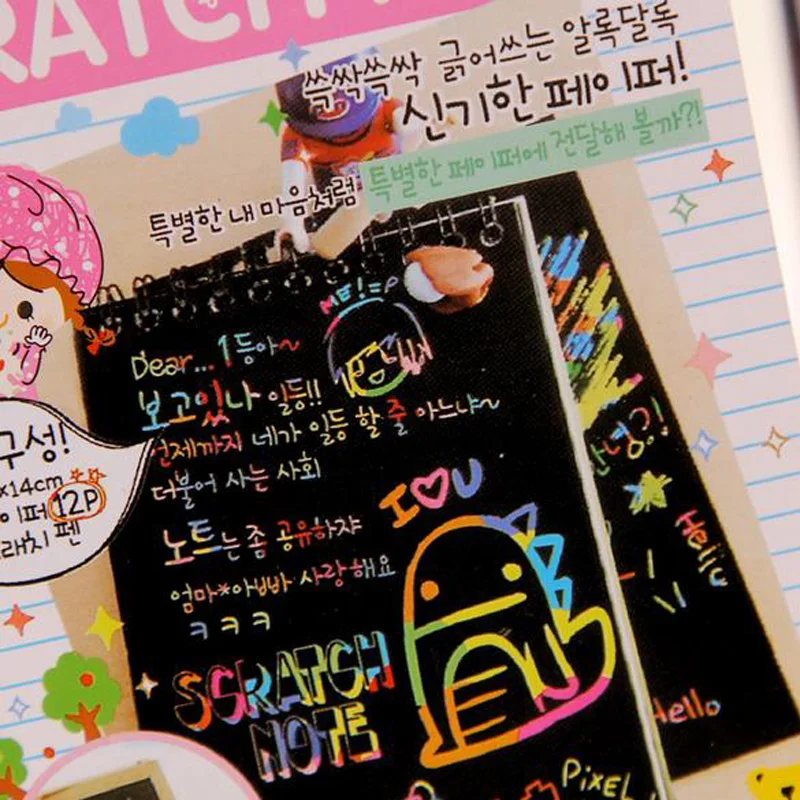 RATCH
쓱싹쓱싹 긁어쓰는 알록달록
신기한 페이퍼!
특별한 내 마음처럼 특별한 페이퍼에 전달해 볼까?!
ME!=P
Dear... 1등아~
보고있나 일등!!
언제까지 네가 일등 할 줄 아느냐~
더불어 사는 사회
노트는 좀 공유하쟈
엄마*아빠 사랑해요
ㅋㅋㅋ
I♡U
SCRATCH
NOTE
구성!
x14cm
이퍼 12P
래치 펜
안녕?!
Hello
PIXEL